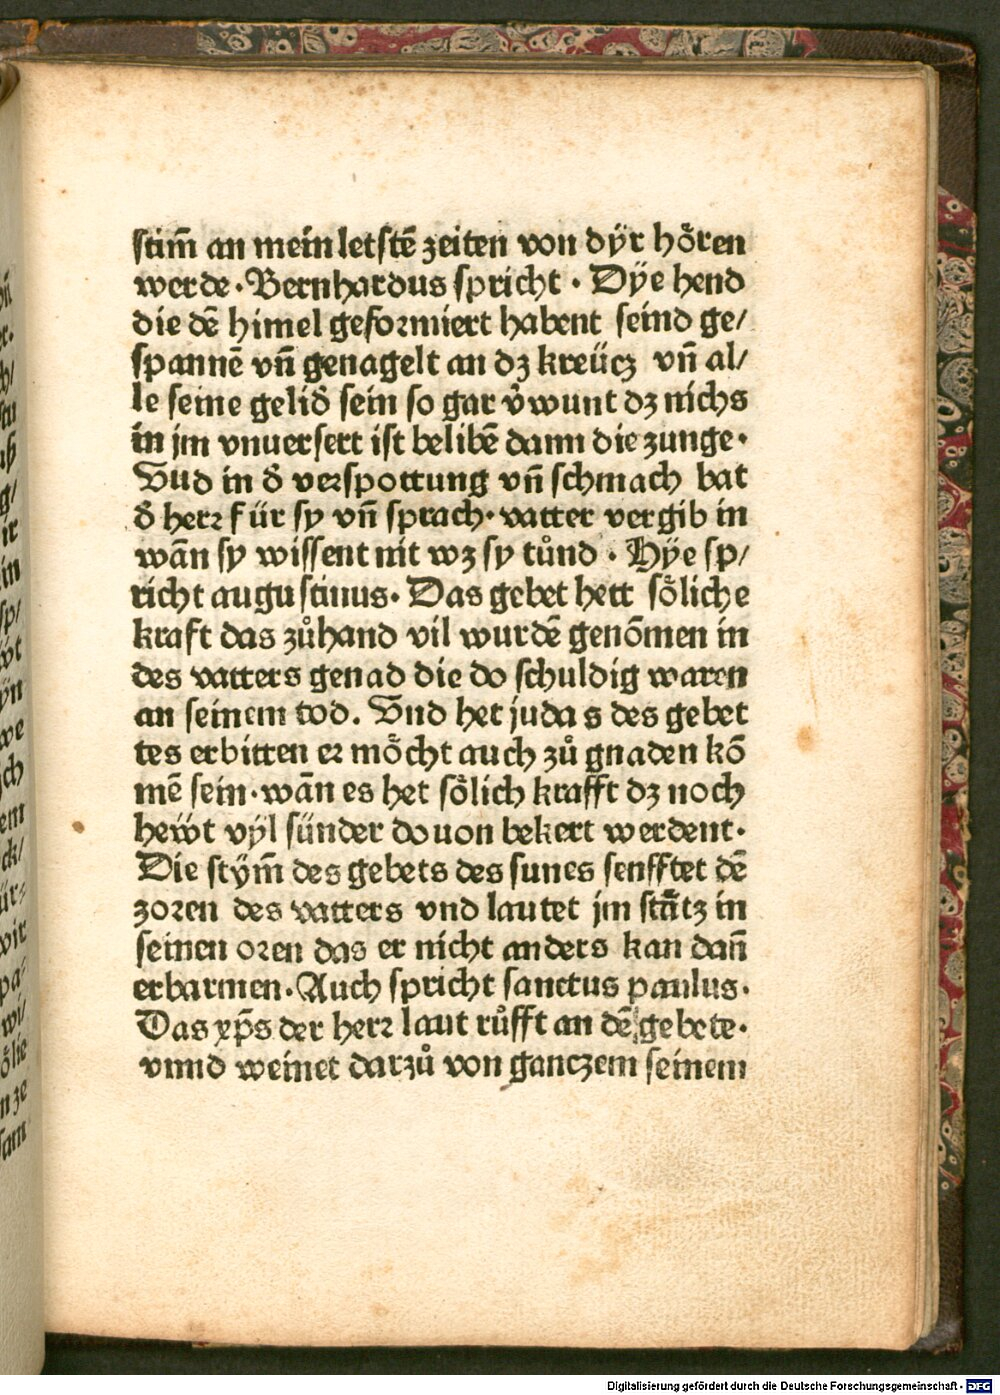 stim̄ an mein letstē zeiten von dÿr hören
werde · Bernhardus spricht · Dÿe hend
die dē himel geformiert habent seind ge/
spannē vn̄ genagelt an dz kreücz vn̄ al/
le seine gelid̄ sein so gar v̄wunt dz nichs
in jm vnuersert ist belibē dann die zunge ·
Vud in d̄ verspottung vn̄ schmach bat
d̄ herr für sy vn̄ sprach · vatter vergib in
wān sy wissent nit wz sy tůnd · Hÿe sp/
richt augustinus · Das gebet hett söliche
kraft das zůhand vil wurdē genōmen in
des vatters genad die do schuldig waren
an seinem tod. Vnd het judas des gebet
tes erbitten er möcht auch zů gnaden kō
mē sein · wān es het sölich krafft dz noch
heẅt vÿl sünder douon bekert werdent ·
Die stÿm̄ des gebets des sunes senfftet dē
zoren des vatters vnd lautet jm stätz in
seinen oren das er nicht anders kan dan̄
erbarmen · Auch spricht sanctus paulus ·
Das xp̄s der herr laut růfft an dē gebete ·
vnnd weinet darzů von ganczem seinem
Digitalisierung gefördert durch die Deutsche Forschungsgemeinschaft - DFG